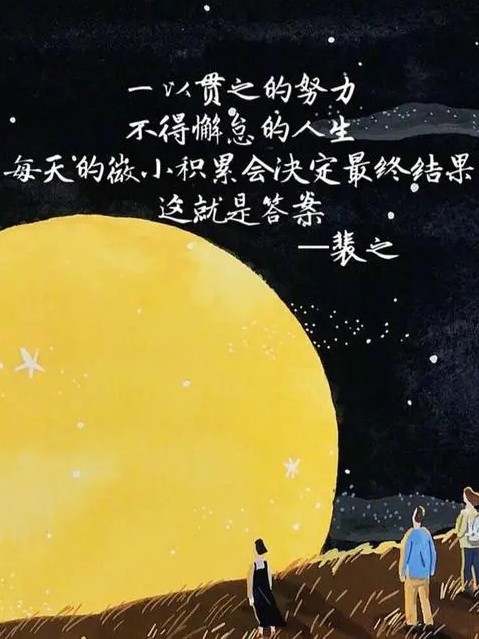 一以贯之的努力
不得懈怠的人生
每天的微小积累会决定最终结果
这就是答案
—裴之